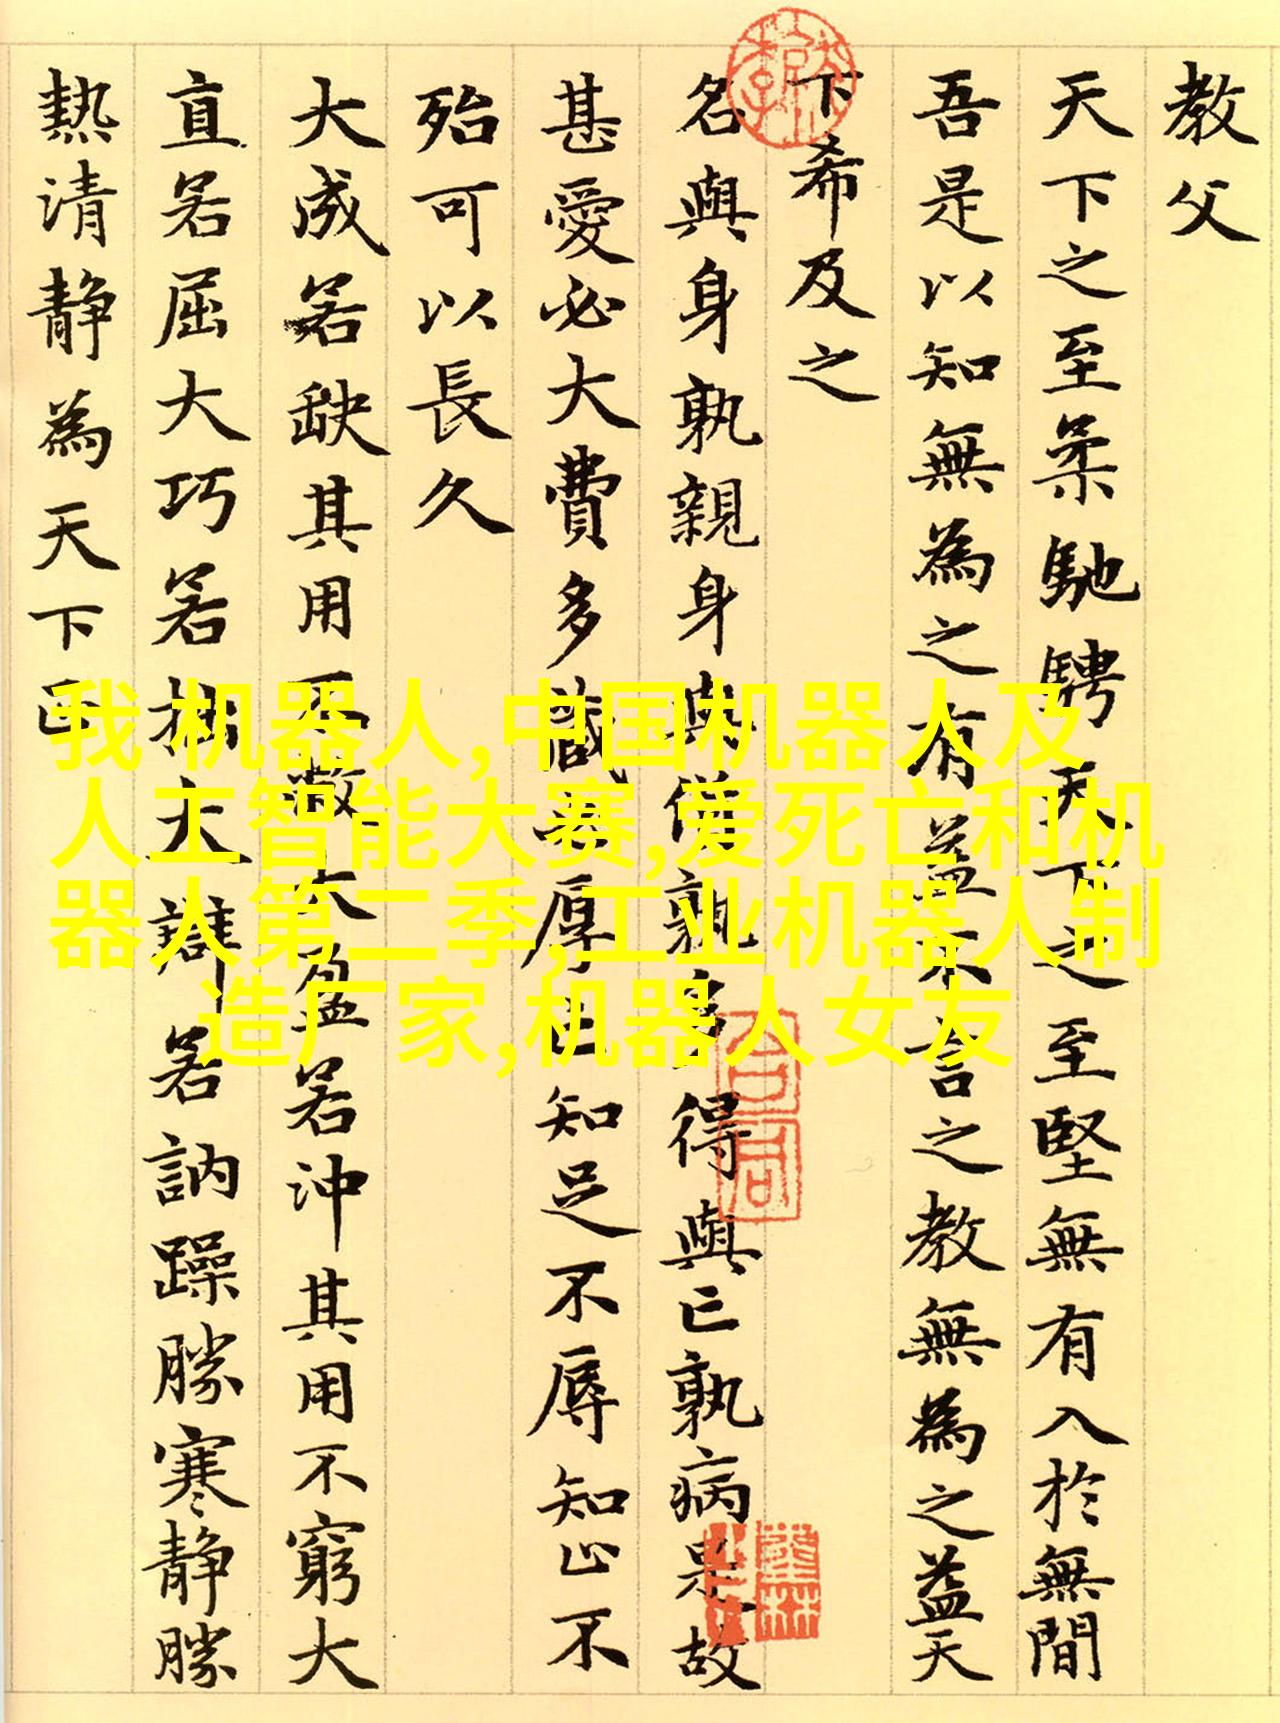 教父
天下之至柔馳騁天下之至堅無有入於無間
吾是以知無為之有益不言之教無為之益天
下希及之
名與身孰親身與貨孰多得與亡孰病是故
甚愛必大費多藏必厚亡知足不辱知止不
殆可以長久
大成若缺其用不敝大盈若沖其用不窮大
直若屈大巧若拙大辯若訥躁勝寒靜勝
熱清靜為天下正
我 机器人,中国机器人及
人工智能大赛,爱死亡和机
器人第二季,工业机器人制
造厂家,机器人女友